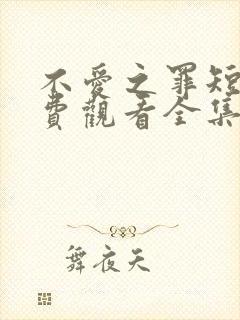 不愛之罪短
費觀看全集
舞夜天